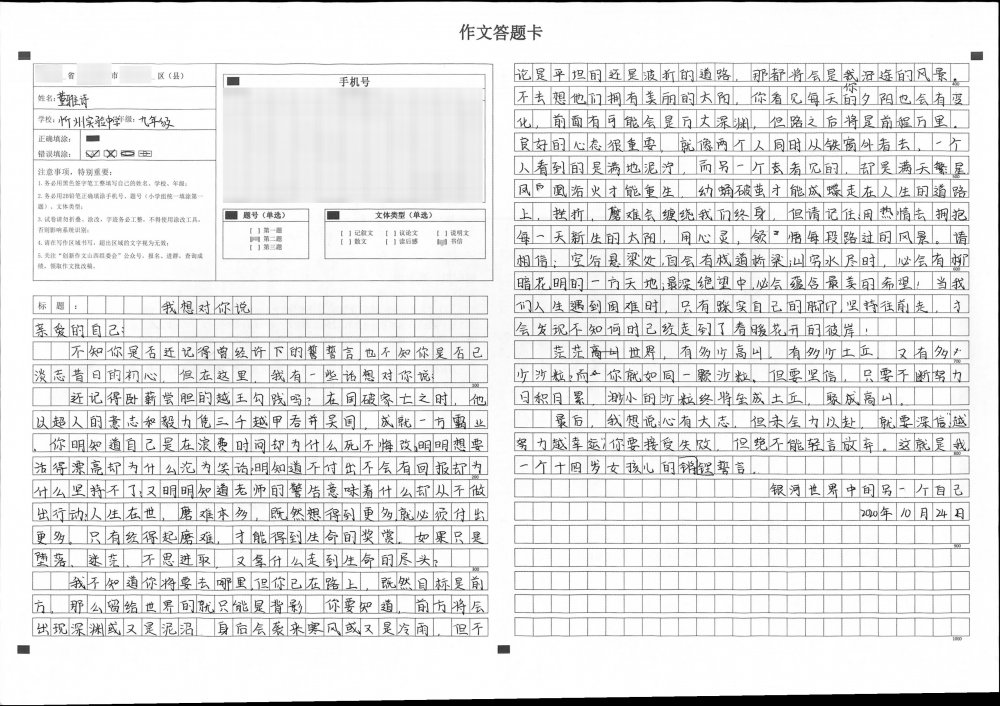 作文答题卡
省 市 区（县）
姓名：董雅诗
学校：忻州实验中学 年级：九年级
正确填涂：
错误填涂：
注意事项，特别重要：
1.务必用黑色签字笔工整填写自己的姓名、学校、年级；
2.务必用2B铅笔正确填涂手机号、题号（小学组统一填涂第一题）、文体类型；
3.试卷请勿折叠、涂改，字迹务必工整，不得使用涂改工具，否则影响系统识别；
4.请在写作区域书写，超出区域的文字视为无效；
5.关注“创新作文山西组委会”公众号，报名、进群、查询成绩、领取作文批改稿。
手机号
题号（单选）
[ ] 第一题
第二题
[ ] 第三题
文体类型（单选）
[ ] 记叙文 [ ] 议论文 [ ] 说明文
[ ] 散文 [ ] 读后感 书信
标 题： 我想对你说
亲爱的自己：
不知你是否还记得曾经许下的誓言也不知你是否已
淡忘昔日的初心，但在这里，我有一些话想对你说：
还记得卧薪尝胆的越王勾践吗？在国破家亡之时，他
以超人的意志和毅力凭三千越甲吞并吴国，成就一方霸业
。你明知道自己是在浪费时间却为什么死不悔改,明明想要
活得漂亮却为什么沦为笑话;明知道不付出不会有回报却为
什么坚持不了;又明明知道老师的警告意味着什么却从不做
出行动;人生在世，磨难本多，既然想得到更多,就必须付出
更多。只有经得起磨难，才能得到生命的奖赏。如果只是
堕落、迷茫、不思进取，又拿什么走到生命的尽头？
我不知道你将要去哪里,但你已在路上，既然目标是前
方，那么留给世界的就只能是背影 你要知道，前方将会
出现深渊或又是泥沼 身后会袭来寒风或又是冷雨，但不
论是平坦的还是波折的道路，那都将会是我沿途的风景。
不去想他们拥有美丽的太阳，你看见每天的夕阳也会有变
化，前面有可能会是万丈深渊，但路之后将是前程万里。
良好的心态很重要，就像两个人同时从铁窗外看去，一个
人看到的是满地泥泞，而另一个去看见的，却是满天繁星
凤凰浴火才能重生，幼蛹破茧才能成蝶走在人生的道路
上，挫折，磨难会缠绕我们终身，但请记住用热情去拥抱
每一天新生的太阳，用心灵，领悟每段路过的风景。请
相信：空谷悬梁处,自会有栈道桥梁;山穷水尽时，必会有柳
暗花明的一方天地;最深绝望中,必会蕴含最美的希望！当我
们人生遇到困难时，只有踩实自己的脚印,坚持往前走，才
会发现不知何时已经走到了春暖花开的彼岸！
茫茫世界，有多少高山，有多少土丘，又有多
少沙粒;而你就如同一颗沙粒、但要坚信，只要不断努力
日积月累，渺小的沙粒终将坐成土丘，聚成高山。
最后，我想说心有大志，但未全力以赴，就要深信“越
努力越幸运,你要接受失败，但绝不能轻言放弃。这就是我
一个十四岁女孩儿的铿锵誓言。
银河世界中的另一个自己
2020年10月24日